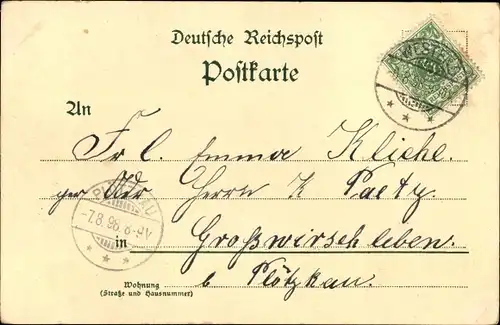 Deutsche Reichspost
Postkarte
An
Frl. Emma Kliehe.
per Adr Herrn K Paetz
in Großwirschleben.
b Plötzkau.
Wohnung
(Straße und Hausnummer)
7.8.98. 8-9V